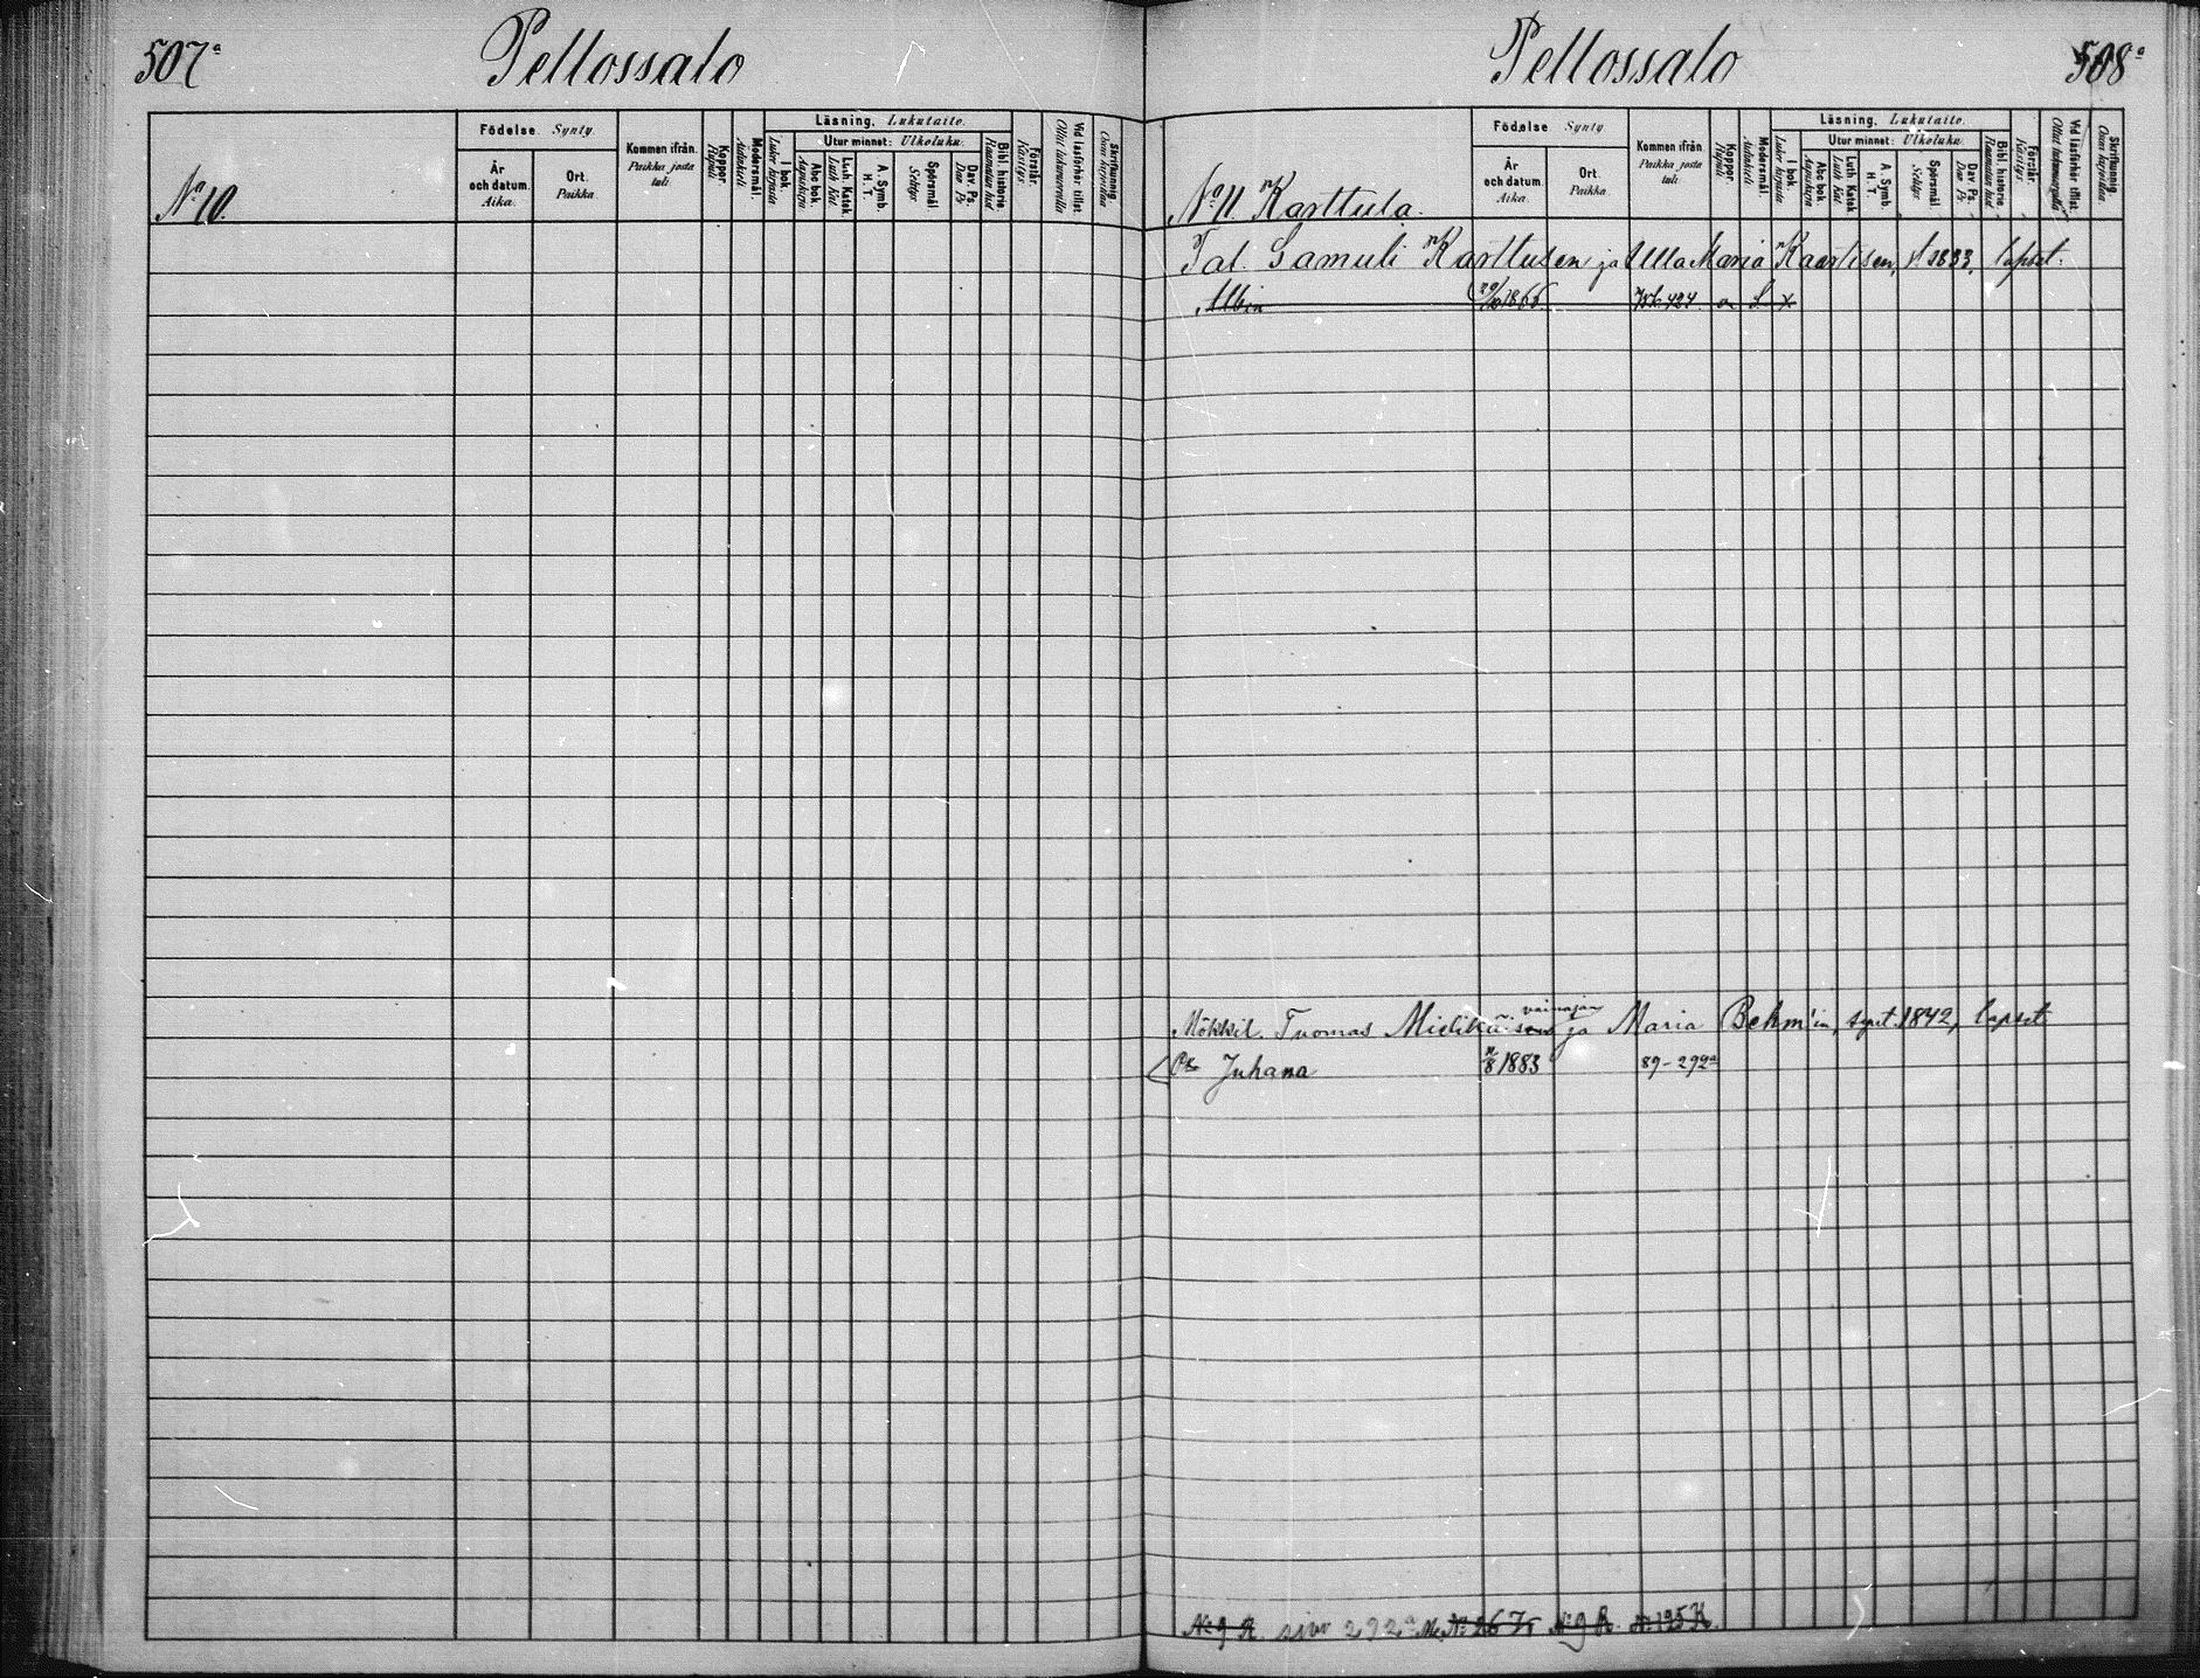 507a
Pellossalo
No 10.
Födelse Synty.
År och datum. Aika.
Ort. Paikka
Kommen ifrån. Paikka josta tuli
Koppor. Rupuli
Modersmål. Äidinkieli
Läsning. Lukutaito.
I bok. Lukee kirjasta
Utur minnet: Ulkoluku.
Abc bok. Aapiskirja
Luth. Katek. Luth Kat.
A. Symb. H. T.
Spörsmål Selitys
Dav. Ps. Dav Ps
Bibl. historie.
Förstår. Käsitys
Vid läsförhör tillst.
Skriftkunnig.
Pellossalo
508a
No 11. Karttula.
Födelse Synty
År och datum. Aika.
Ort. Paikka.
Kommen ifrån. Paikka josta tuli.
Koppor. Rupuli
Modersmål. Äidinkieli
Läsning. Lukutaito.
I bok. Lukee kirjasta
Utur minnet: Ulkoluku.
Abc bok. Aapiskirja
Luth Katek Luth Kat
A. Symb. H. T.
Spörsmål. Selitys
Dav Ps. Dav Ps.
Bibl. historie
Förstår. Käsitys.
Vid läsförhör tillst.
Skriftkunnig.
Tal. Samuli Karttusen ja Ulla Maria Kaartisen, s. 1833, lapset.
Albin 1866. 424
vainajan
Mökkil. Tuomas Miettisen ja Maria Behm'in, synt. 1842, lapset
Juhana 1883 89-292a
No 9 R. sivu 292a No 9 R. No 195 K.